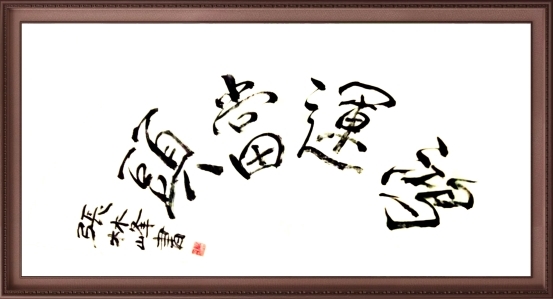 鴻運當頭
張林峰書